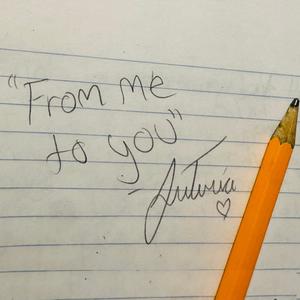 "From me
to you"